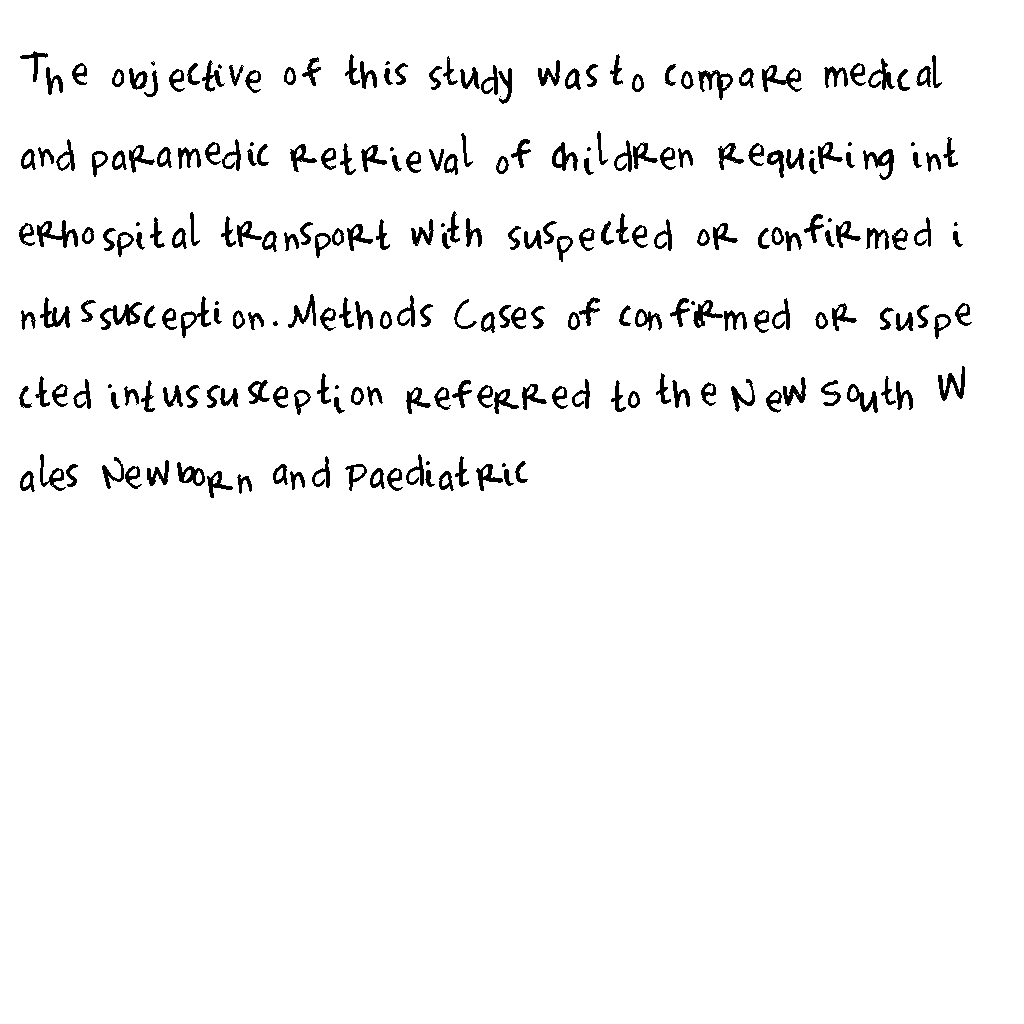 The objective of this study was to compare medical
and paramedic retrieval of children requiring int
erhospital transport with suspected or confirmed i
ntussusception. Methods Cases of confirmed or suspe
cted intussusception referred to the New South W
ales Newborn and Paediatric